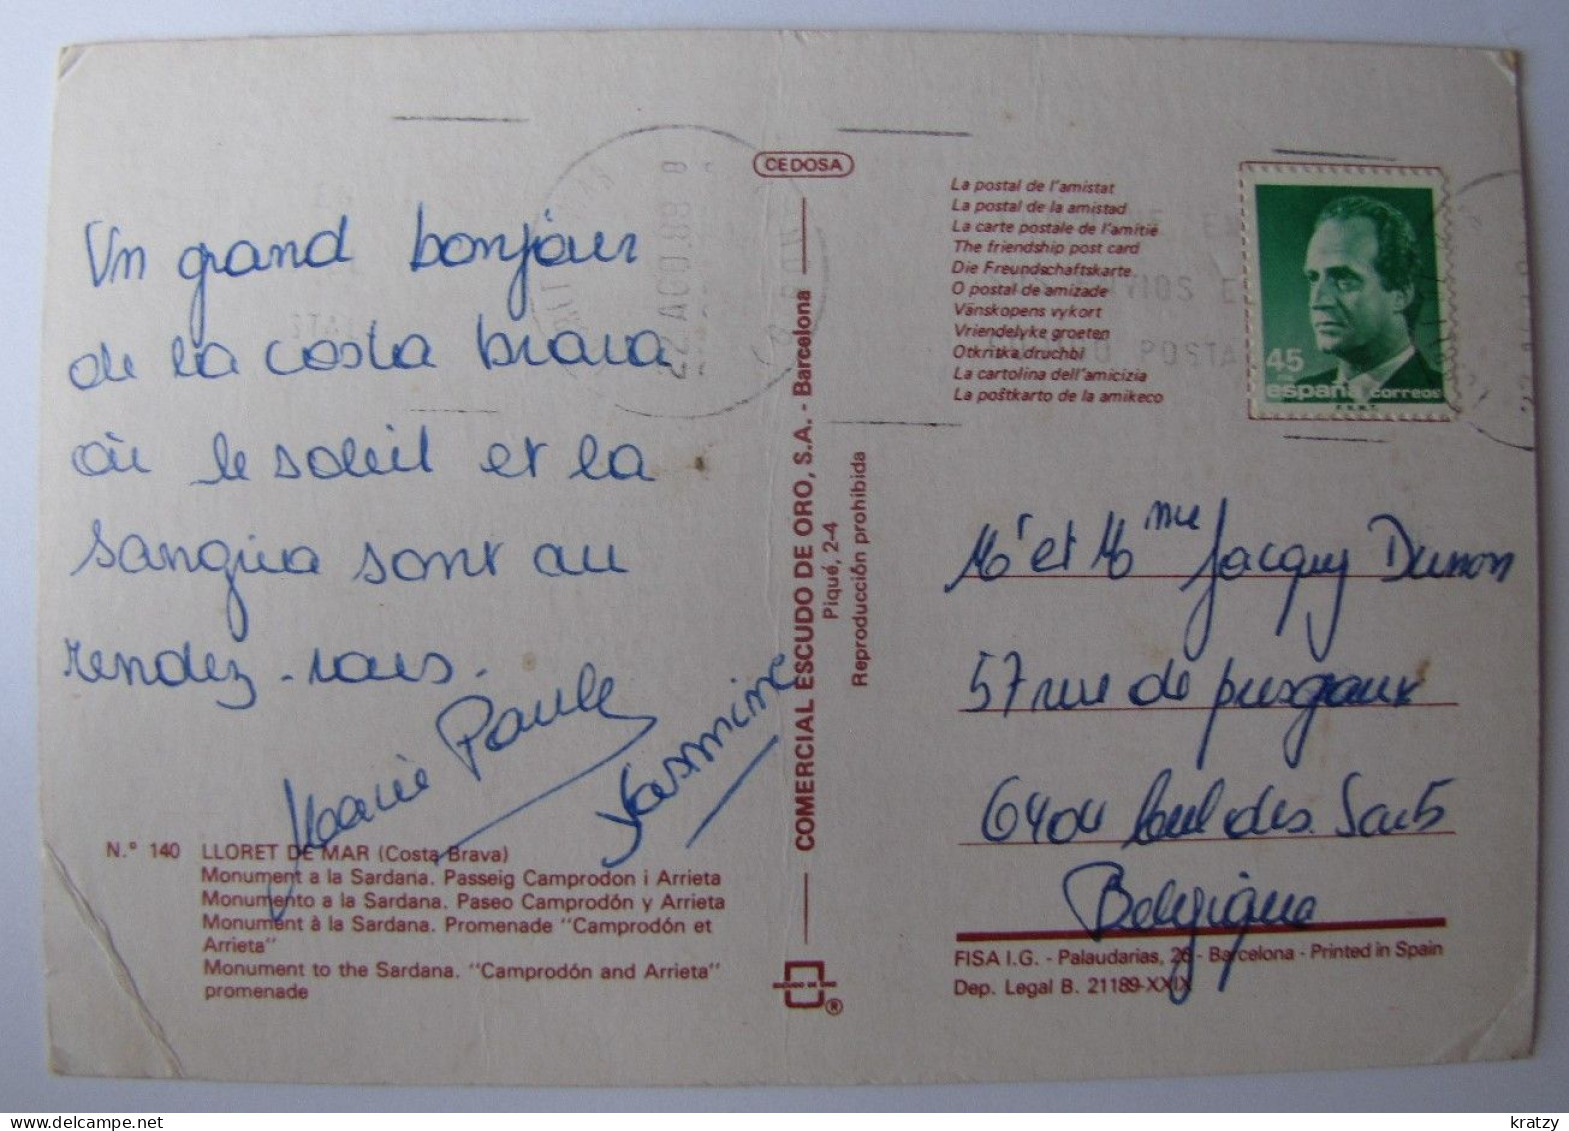 Un grand bonjour
de la costa brava
où le soleil et la
sangria sont au
rendez-vous.
Marie Paule
Yasmine
N.° 140 LLORET DE MAR (Costa Brava)
Monument a la Sardana. Passeig Camprodon i Arrieta
Monumento a la Sardana. Paseo Camprodón y Arrieta
Monument à la Sardana. Promenade "Camprodón et
Arrieta"
Monument to the Sardana. "Camprodón and Arrieta"
promenade
CEDOSA
COMERCIAL ESCUDO DE ORO, S.A. - Barcelona
Piqué, 2-4
Reproducción prohibida
ESCUDO DE ORO
®
22 AGO 88
La postal de l'amistat
La postal de la amistad
La carte postale de l'amitié
The friendship post card
Die Freundschaftskarte
O postal de amizade
Vänskopens vykort
Vriendelyke groeten
Otkritska druchbl
La cartolina dell'amicizia
La poštkarto de la amikeco
POSTA
45
españa correos
F.N.M.T.
Mr et Mme Jacquy Dumon
57 rue de
6404 des Sarts
Belgique
FISA I.G. - Palaudarias, 26 - Barcelona - Printed in Spain
Dep. Legal B. 21189-XXIX
kratzy